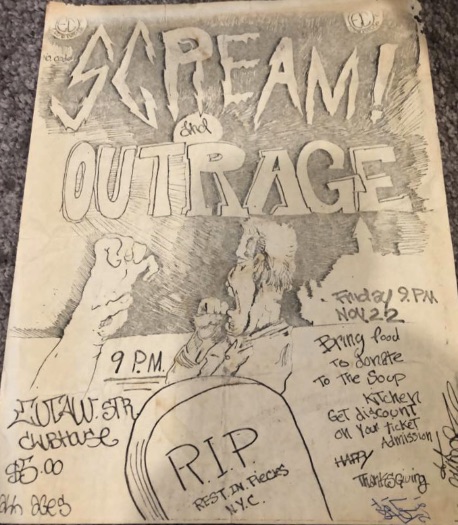 SCREAM!
and
OUTRAGE
Friday 9. P.M
NOV. 22
Bring food
To donate
To The Soup
Kitchen
Get discount
On Your ticket
Admission
HAPPY
Thanksgiving
9 P.M.
EUTAW. STR
CLUBHOUSE
$5.00
All Ages
R.I.P
REST. IN. PIECES
N.Y.C.